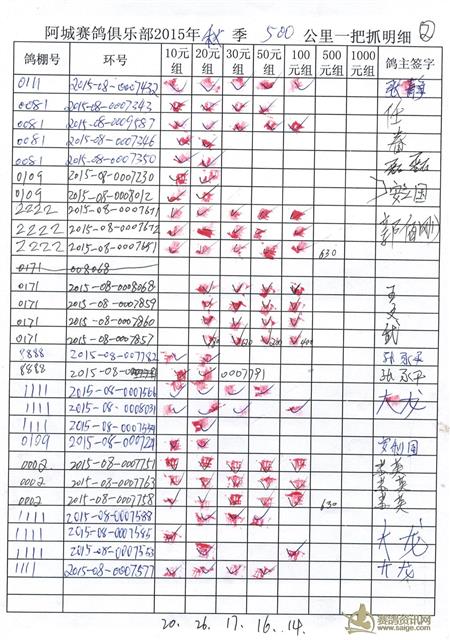 阿城赛鸽俱乐部2015年秋季 500 公里一把抓明细 ②
鸽棚号 环号 10元组 20元组 30元组 50元组 100元组 500元组 1000元组 鸽主签字
0111 2015-08-0007432
0081 2015-08-0007343 任
0081 2015-08-0009587
0081 2015-08-0007346 春
0081 2015-08-0007350 磊磊
0109 2015-08-0007230
0109 2015-08-0008012
2222 2015-08-0007671
2222 2015-08-0007672
2222 2015-08-0007651 630
0171 008068
0171 2015-08-0008068 王
0171 2015-08-0007859 文
0171 2015-08-0007860
0171 2015-08-0007857 武
8888 2015-08-0007782 张永平
8888 2015-08- 0007791 张永平
1111 2015-08-0007566 大龙
1111 2015-08-0008031
1111 2015-08-0007559
0109 2015-08-000
0002 2015-08-0007751 李英
0002 2015-08-0007763 李英
0002 2015-08-0007758 630 李英
1111 2015-08-0007588
1111 2015-08-0007585
1111 2015-08-0007553 大龙
1111 2015-08-0007577 大龙
20. 26. 17. 16. 14.
赛鸽资讯网
www.saige.com